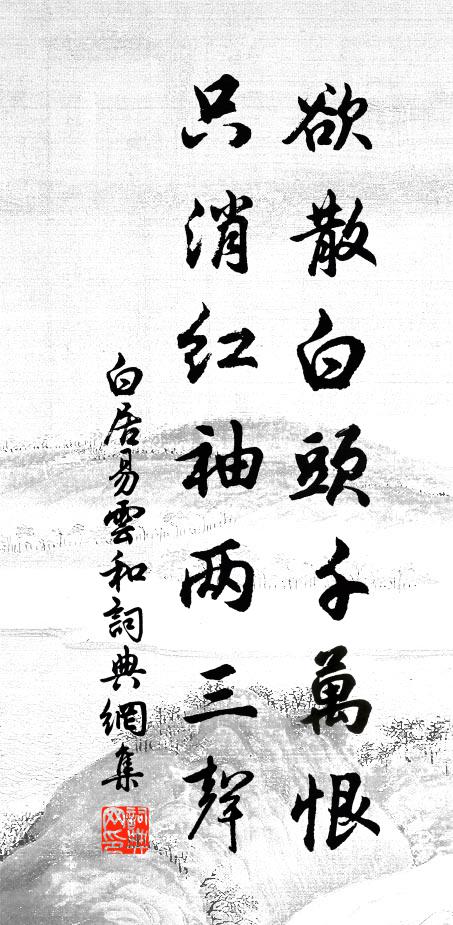 欲散白頭千萬恨
只消紅袖两三聲
白居易雲和詞典網集